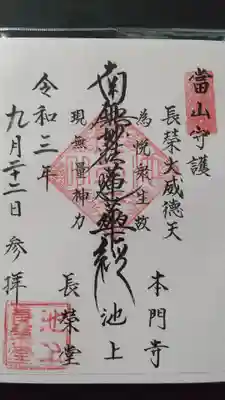 當山守護
長榮大威徳天
為悦衆生故
南無妙法蓮華経
現無量神力
令和三年
九月二十二日参拝
本門寺
池上
長榮堂
池上
長榮堂